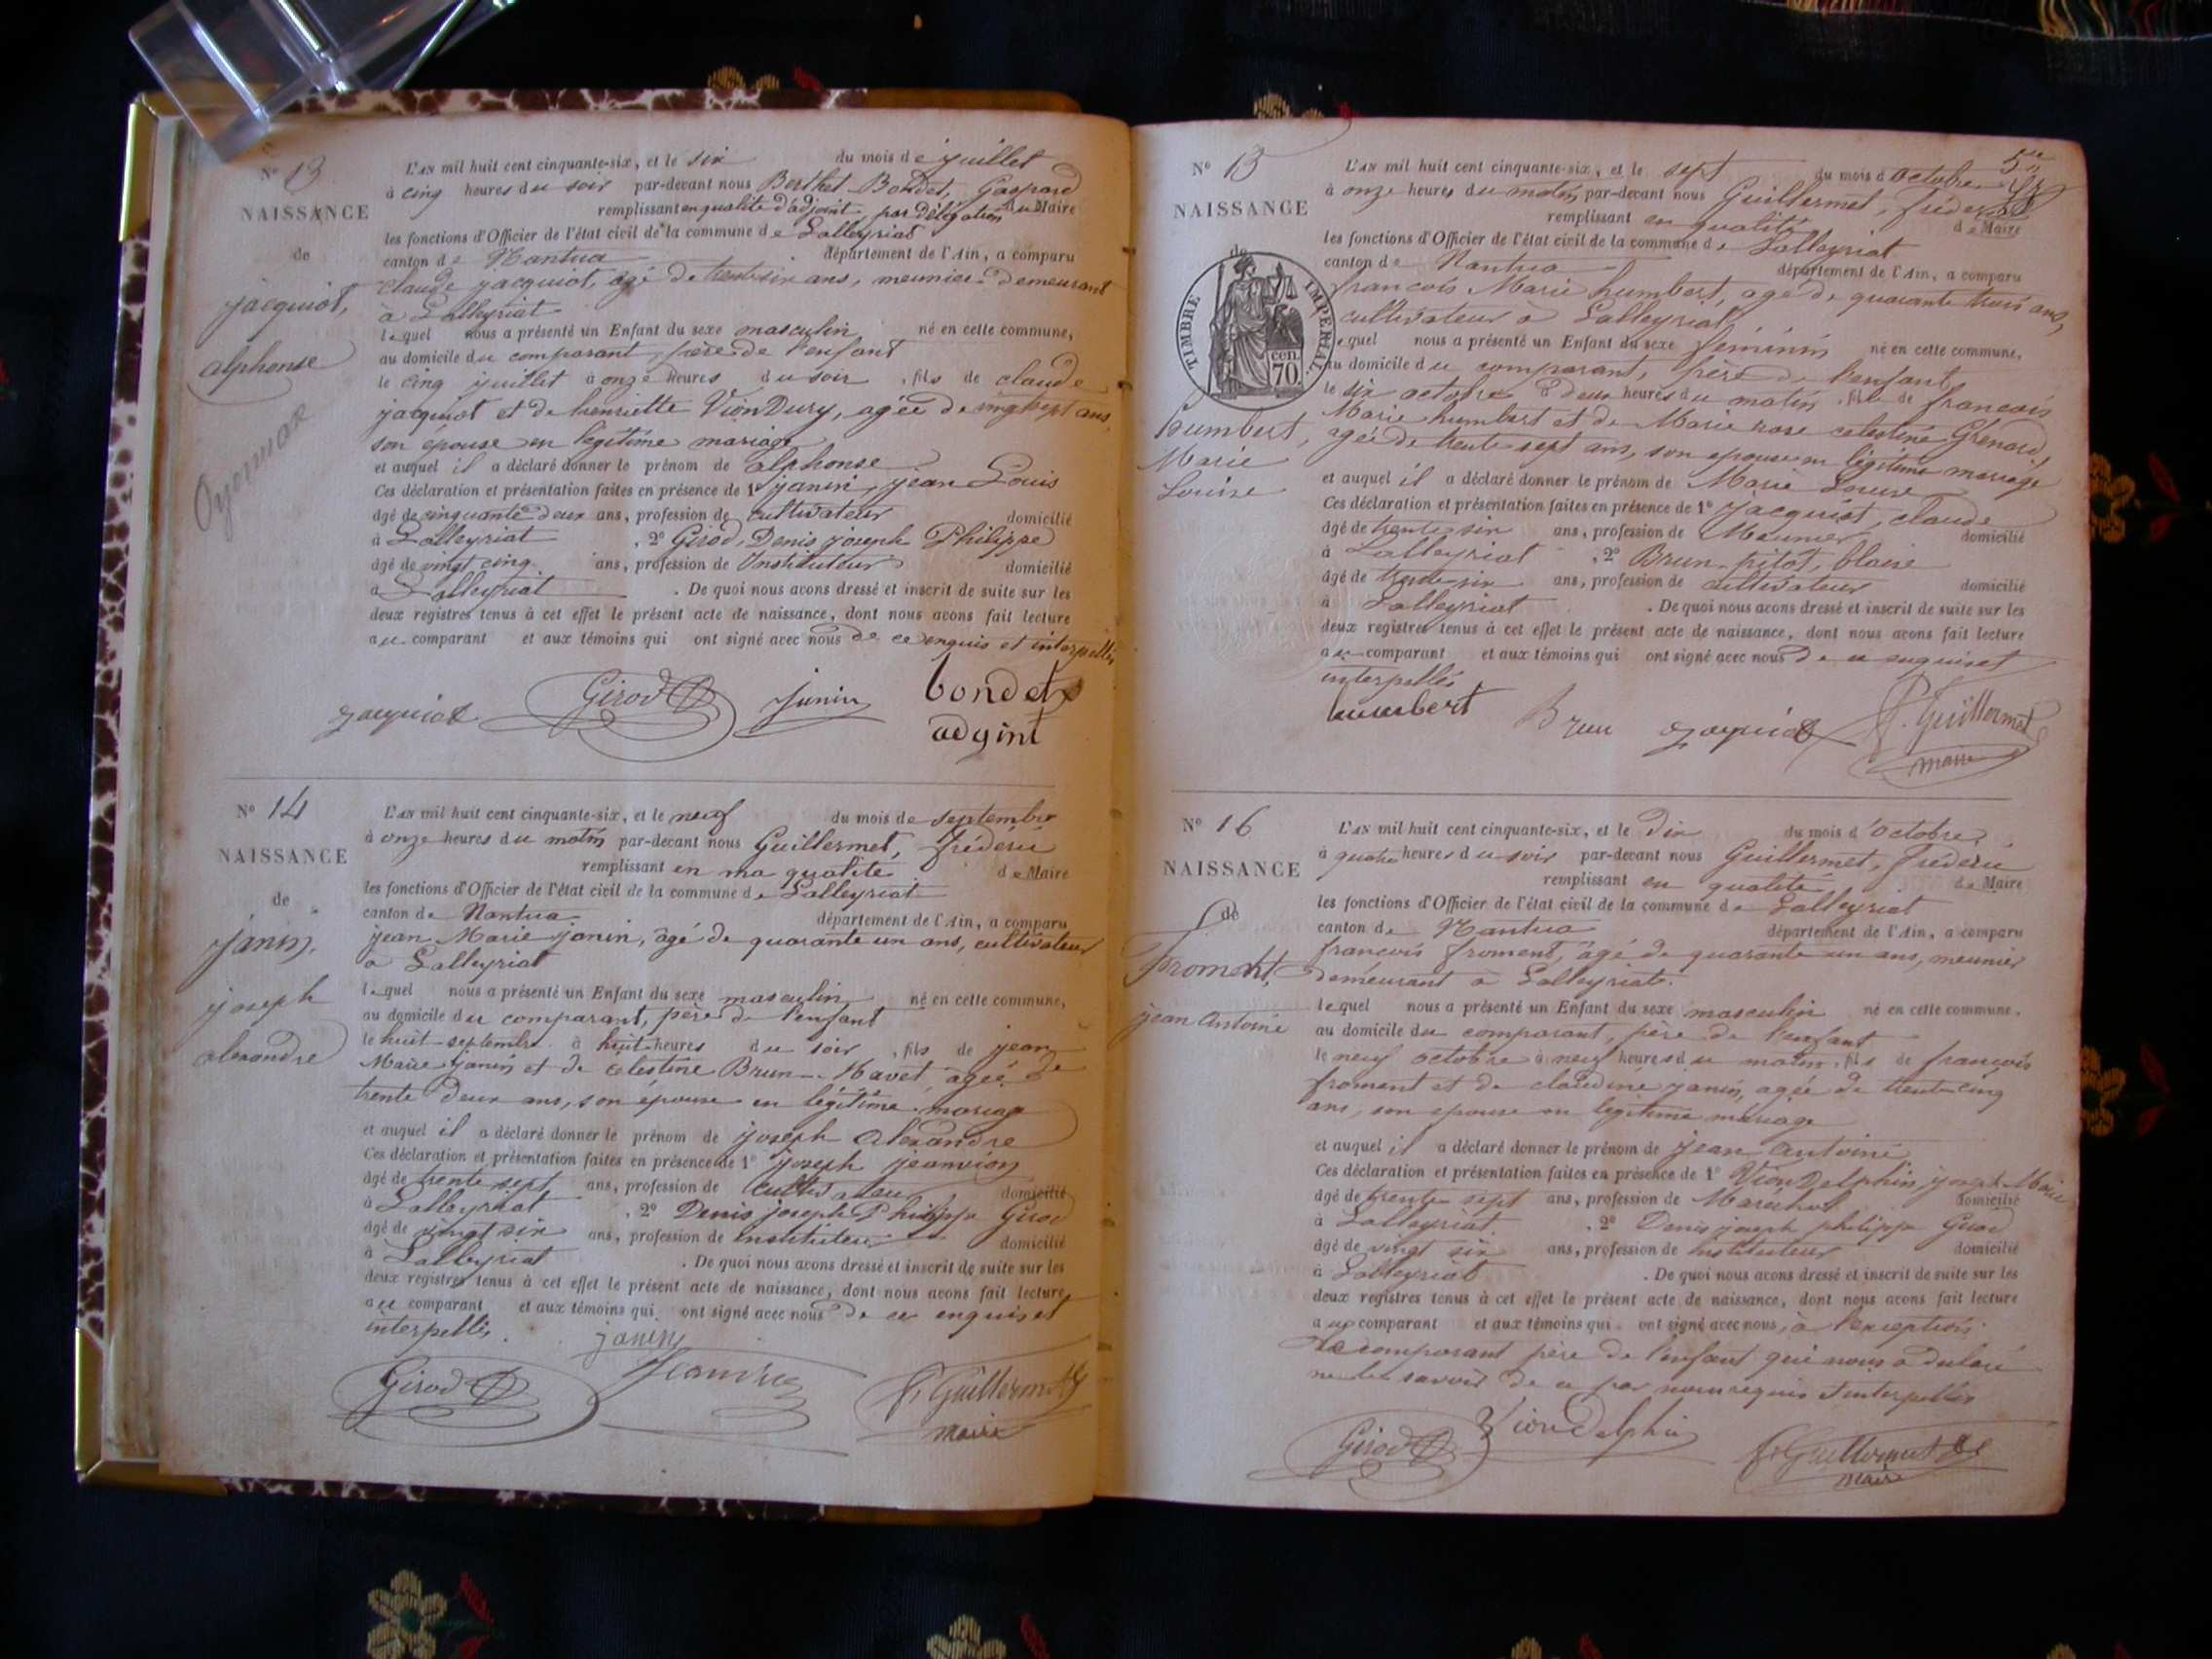 N° 13
NAISSANCE
de
jacquiot,
alphonse
Oyonnax
L'AN mil huit cent cinquante-six, et le six du mois de juillet
à cinq heures du soir par-devant nous Berthet-Bondet, Gaspard
remplissant en qualité d'adjoint par délégation du Maire
les fonctions d'Officier de l'état civil de la commune de Lalleyriat
canton de Nantua département de l'Ain, a comparu
claude jacquiot, agé de trente six ans, meunier demeurant
à Lalleyriat
lequel nous a présenté un Enfant du sexe masculin né en cette commune,
au domicile du comparant, père de l'enfant
le cinq juillet à onze heures du soir, fils de claude
jacquiot et de henriette Vion Dury, agée de vingt sept ans,
son épouse en légitime mariage
et auquel il a déclaré donner le prénom de alphonse
Ces déclaration et présentation faites en présence de 1° janin, jean Louis
âgé de cinquante deux ans, profession de cultivateur domicilié
à Lalleyriat, 2° Girod, Denis joseph Philippe
âgé de vingt cinq ans, profession de Instituteur domicilié
à Lalleyriat. De quoi nous avons dressé et inscrit de suite sur les
deux registres tenus à cet effet le présent acte de naissance, dont nous avons fait lecture
au comparant et aux témoins qui ont signé avec nous de ce enquis et interpellés
jacquiot Girod Janin bondet
adgint
N° 14
NAISSANCE
de
janin,
joseph
alexandre
L'AN mil huit cent cinquante-six, et le neuf du mois de septembre
à onze heures du matin par-devant nous Guillermet, fréderic
remplissant en ma qualité de Maire
les fonctions d'Officier de l'état civil de la commune de Lalleyriat
canton de Nantua département de l'Ain, a comparu
jean Marie janin, âgé de quarante un ans, cultivateur
à Lalleyriat
lequel nous a présenté un Enfant du sexe masculin né en cette commune,
au domicile du comparant, père de l'enfant
le huit septembre à huit heures du soir, fils de jean
Marie janin et de celestine Brun-Mavet, agée de
trente deux ans, son épouse en légitime mariage
et auquel il a déclaré donner le prénom de joseph alexandre
Ces déclaration et présentation faites en présence de 1° joseph jeanvion
âgé de trente sept ans, profession de cultivateur domicilié
à Lalleyriat, 2° Denis joseph Philippe Girod
âgé de vingt six ans, profession de Instituteur domicilié
à Lalleyriat. De quoi nous avons dressé et inscrit de suite sur les
deux registres tenus à cet effet le présent acte de naissance, dont nous avons fait lecture
au comparant et aux témoins qui ont signé avec nous de ce enquis et
interpellés. janin
Girod F. Guillermet
Maire
N° 15
NAISSANCE
de
TIMBRE IMPERIAL
70 cen.
humbert,
Marie
Louise
L'AN mil huit cent cinquante-six, et le sept du mois d'octobre
à onze heures du matin par-devant nous Guillermet, fréderic
remplissant en qualité de Maire
les fonctions d'Officier de l'état civil de la commune de Lalleyriat
canton de Nantua département de l'Ain, a comparu
françois Marie humbert, agé de quarante trois ans,
cultivateur à Lalleyriat
lequel nous a présenté un Enfant du sexe féminin né en cette commune,
au domicile du comparant, père de l'enfant
le six octobre à deux heures du matin, fille de françois
Marie humbert et de Marie rose celestine Grénard,
agée de trente sept ans, son epouse en légitime mariage
et auquel il a déclaré donner le prénom de Marie Louise
Ces déclaration et présentation faites en présence de 1° jacquiot, claude
âgé de trente six ans, profession de Meunier domicilié
à Lalleyriat, 2° Brun-pitot, blaise
âgé de trente six ans, profession de cultivateur domicilié
à Lalleyriat. De quoi nous avons dressé et inscrit de suite sur les
deux registres tenus à cet effet le présent acte de naissance, dont nous avons fait lecture
au comparant et aux témoins qui ont signé avec nous de ce enquis et
interpellés
humbert Brun jacquiot F. Guillermet
maire
N° 16
NAISSANCE
de
froment,
jean antoine
L'AN mil huit cent cinquante-six, et le dix du mois d'octobre
à quatre heures du soir par-devant nous Guillermet, fréderic
remplissant en qualité de Maire
les fonctions d'Officier de l'état civil de la commune de Lalleyriat
canton de Nantua département de l'Ain, a comparu
françois froment, âgé de quarante un ans, meunier
demeurant à Lalleyriat.
lequel nous a présenté un Enfant du sexe masculin né en cette commune,
au domicile du comparant, père de l'enfant
le neuf octobre à neuf heures du matin, fils de françois
froment et de claudine janin, agée de trente cinq
ans, son epouse en légitime mariage
et auquel il a déclaré donner le prénom de jean antoine
Ces déclaration et présentation faites en présence de 1° Vion Delphin joseph Marie
âgé de trente sept ans, profession de Maréchal domicilié
à Lalleyriat, 2° Denis joseph philippe Girod
âgé de vingt six ans, profession de Instituteur domicilié
à Lalleyriat. De quoi nous avons dressé et inscrit de suite sur les
deux registres tenus à cet effet le présent acte de naissance, dont nous avons fait lecture
au comparant et aux témoins qui ont signé avec nous, à l'exception
du comparant père de l'enfant qui nous a declaré
ne le savoir de ce par nous requis et interpellés
Girod Vion Delphin F. Guillermet
maire